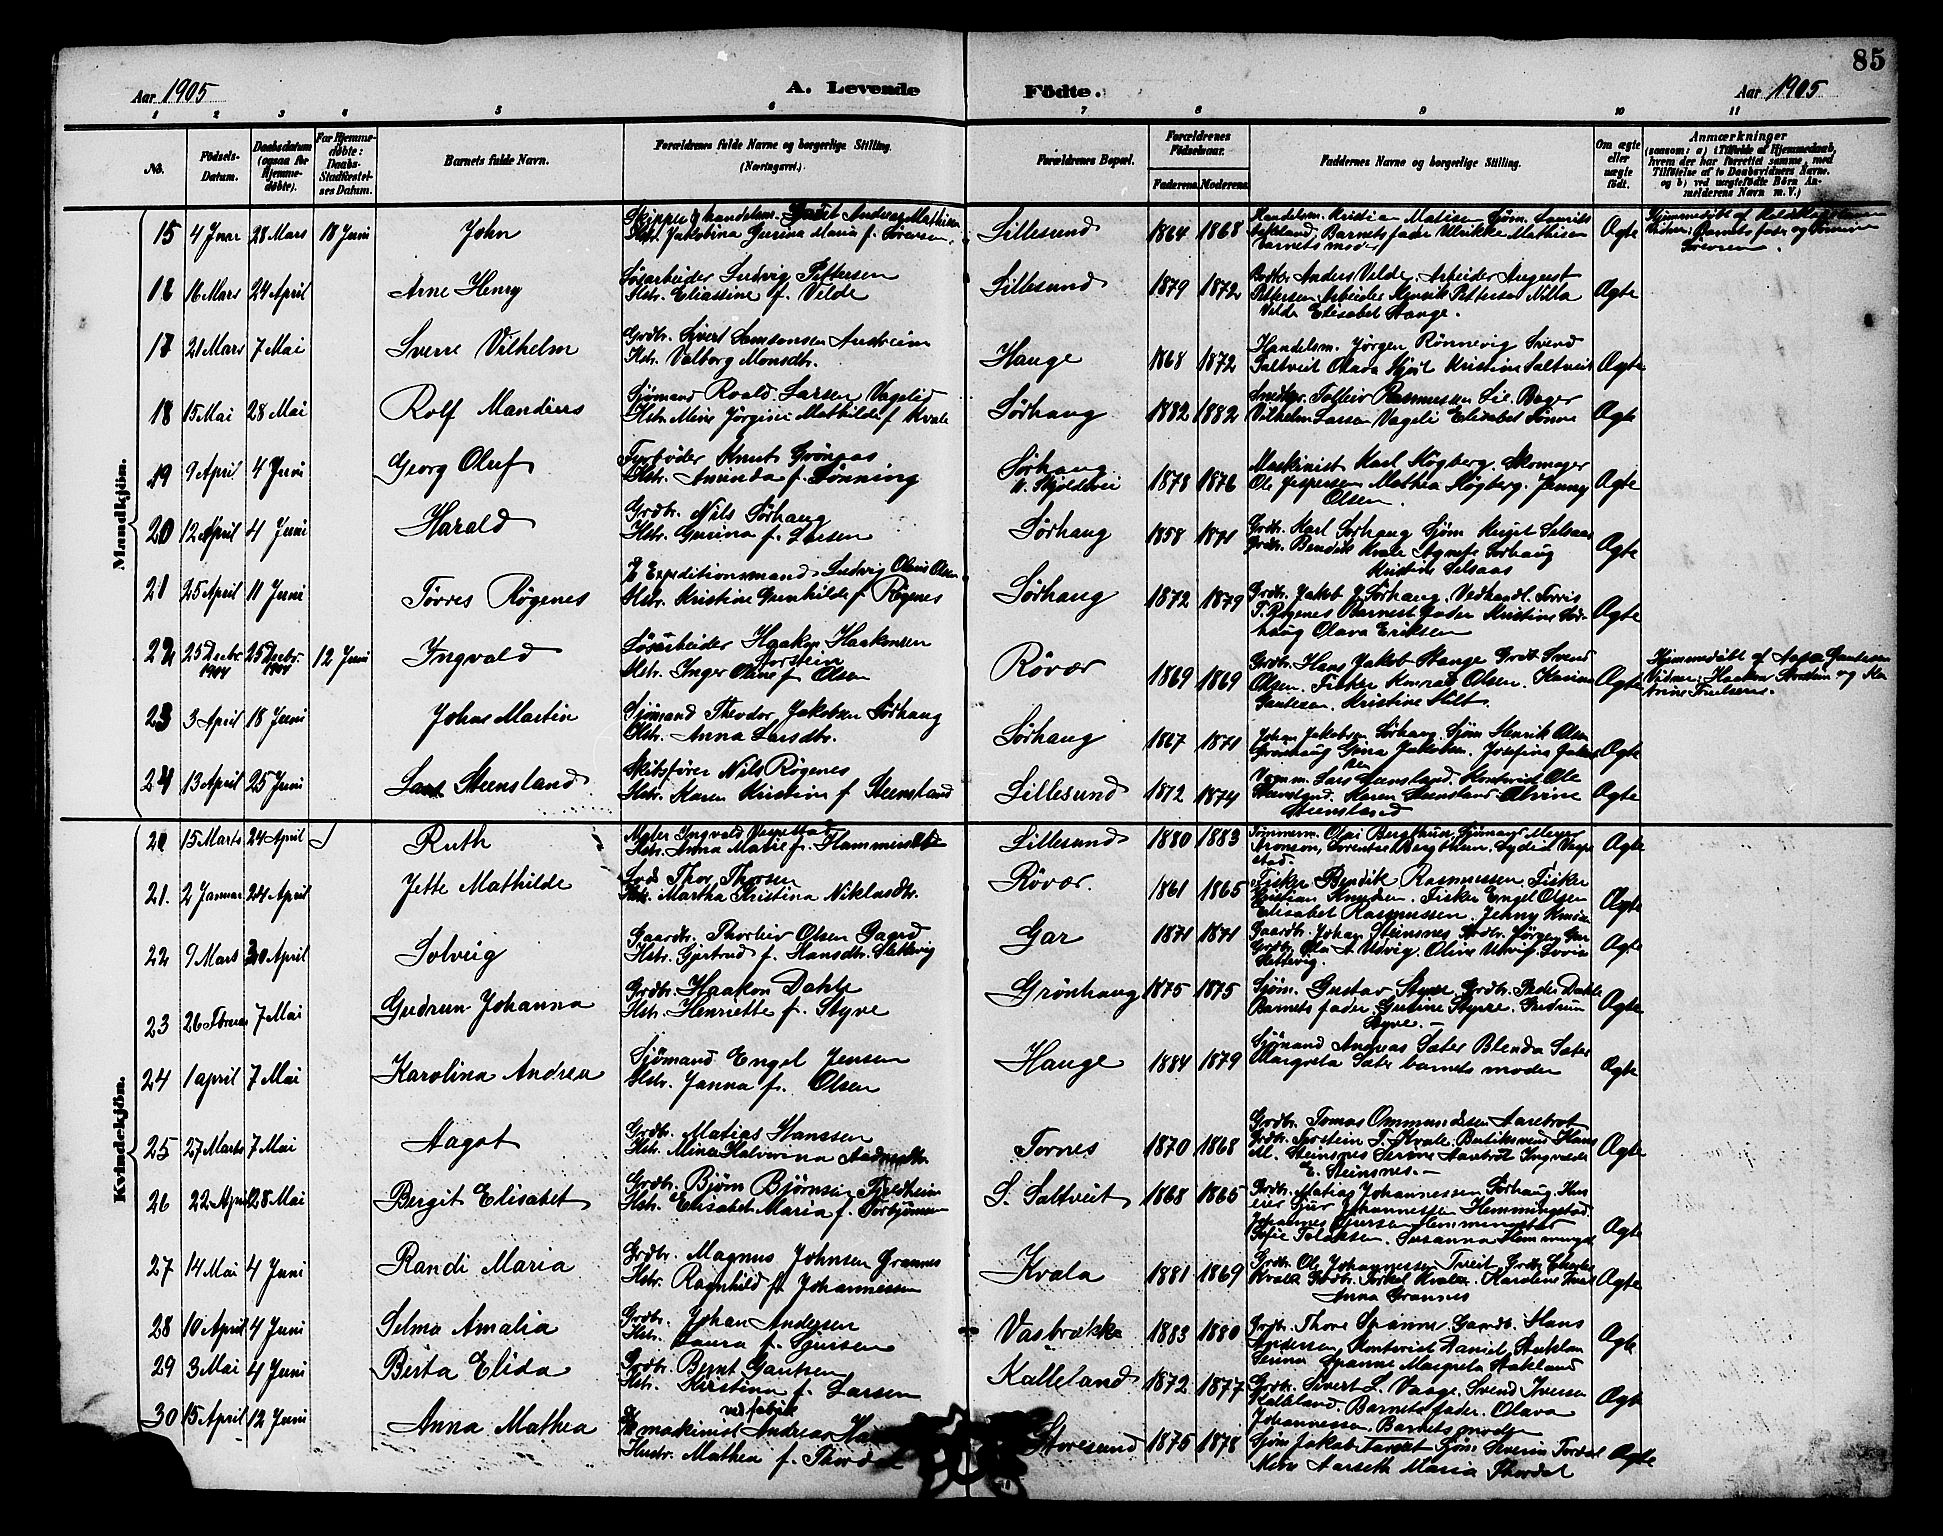 85
Aar 1905 A. Levende Födte. Aar 1905
1 2 3 4 5 6 7 8 9 10 11
No. Födsels-Datum. Daabsdatum (ogsaa for Hjemmedöbte). For Hjemmedöbte: Daabs-Stadfæstelses Datum. Barnets fulde Navn. Forældrenes fulde Navne og borgerlige Stilling. (Næringsvei.) Forældrenes Bopæl. Forældrenes Födselsaar. Faderens Moderens Faddernes Navne og borgerlige Stilling. Om ægte eller uægte födt. Anmærkninger (saasom: a) i Tilfælde af Hjemmedaab, hvem der har forrettet samme, med Tilföielse af to Daabsvidners Navne, og b) ved uægtefödte Börn Anmelderens Navn m. V.)
Mandkjön.
15 4 Juar 28 Mars 18 Juni John
Hstr. Jakobina Gurina Maria f. Sörensen
Lillesund 1864 1868
Barnets fader Ulrikke Mathisen
Barnets moder
Ægte
16 16 Mars 24 April Arne Henry
Løsarbeider Ludvig Pettersen
Hstr. Eliassine f. Velde
Lillesund 1879 1872
Grdbr. Anders Velde, Arbeider August
Pettersen, Arbeider Henrik Pettersen Nilla
Velde Elisabet Hauge.
Ægte
17 21 Mars 7 Mai Sverre Vilhelm
Grdbr. Sivert Samsonsen Austreim
Hstr. Valborg Monsdtr.
Hauge 1868 1872
Handelsm. Jörgen Rönnevig Svend
Saltveit Olava Kristine Saltveit
Ægte
18 15 Mai 28 Mai Rolf Mandius
Sjömand Roald Larsen Vageli
Hstr. Mine Jörgine Mathilde f Kvale
Sörhaug 1882 1882
Snedker Tolleiv Rasmussen Lie Bager
Vilhelm Larsen Vageli Elisabet
Ægte
19 9 April 4 Juni Georg Oluf
Fyrböder Knut Grönaas
Hstr. Amanda f. Lönning
Sörhaug
v. Skjoldevei
1878 1876
Maskinist Karl Högberg. Skomager
Ole Jespersen Mathea Högberg. Jenny
Olsen
Ægte
20 12 April 4 Juni Harald
Grdbr. Nils Sörhaug
Hstr. Gurina f. Larsen
Sörhaug 1858 1871
Grdbr. Karl Sörhaug Sjöm Knut Selsaas
Grdbr. Bendik Kvale Agnete Sörhaug
Kristine Selsaas
Ægte
21 25 April 11 Juni Törres Røgenes
Expeditionsmand Ludvig Olaus Olsen
Hstr. Kristine Gunhilde f Røgenes
Sörhaug 1872 1879
Grdbr. Jakob J Sörhaug, Vedhandl. Torris
T. Røgenes Barnets fader Kristine Sörhaug
Olava Eriksen
Ægte
22 25 Decbr 1904 25 Decbr 1904 12 Juni Ingvald
Løsarbeider Haakon Haakonsen
Torstein
Hstr. Inger Oline f Olsen
Røvær 1869 1869
Grdbr. Hans Jakob Hauge Grdb Svend
Olsen. Fisker Konrad Olsen. Karine
Gautesen. Kristine Hilt
Ægte
Hjemmedöbt af
Vidner: Haakon
23 3 April 18 Juni Johns Martin
Sjömand Theodor Jakobsen Sörhaug
Hstr. Anna Larsdtr.
Sörhaug 1867 1871
Johan Jakobsen Sörhaug. Sjöm Henrik Olsen
Grönhaug Gina Jakobsen. Josefine Jakobsen
Ægte
24 13 April 25 Juni Lars Steensland
Skibsförer Nils Røgenes
Hstr. Karen Kristine f Steensland
Lillesund 1872 1874
Lars Steensland. Kontorist Ole
Steensland. Karen Steensland Alvine
Steensland
Ægte
Kvindekjön.
20 15 Marts 24 April Ruth
Maler Ingvald Vespestad
Hstr. Anna Marie f. Flammersfeld
Lillesund 1880 1883
Tömmerm. Olai Bergthun, Meyer
Aronson, Lorentse Bergthun. Lydia Vespestad.
Ægte
21. 2 Januar 24 April Jette Mathilde
Thor Thorsen
Hstr. Martha Kristina Niklasdtr.
Røvær. 1861 1865
Fisker Bendik Rasmussen. Fisker
Kristian Knudsen. Fisker Engel Olsen
Elisabet Rasmussen. Jenny Knudsen
Ægte
22 9 Mars 30 April Solveig
Gaardbr. Thorleiv Olsen Gaard
Hstr. Gjertrud f. Hansdtr. Slettevig
Gar 1871 1871
Gaardbr. Johan Steinsnes Grdbr. Jörgen Gar
Grdbr. Ola A Udvig. Oline Udvig. Lovise
Slettevig.
Ægte
23 26 Febrer 7 Mai Gudrun Johanna
Grdbr. Haakon Dahle
Hstr. Henriette f. Styve
Grönhaug 1875 1875
Sjöm. Gustav Styve Grdbr. Peder Dahle
Barnets fader. Gurine Styve. Gudrun
Styve. –
Ægte
24 1 april 7 Mai Karolina Andrea
Sjömand Engel Jensen
Hstr. Janna f. Olsen
Hauge 1884 1879
Sjömand Andreas Sæter Blenda Sæter
Margreta Sæter barnets moder
Ægte
25 27 Marts 7 Mai Aagot
Grdbr. Matias Hanssen
Hstr. Mina Halverina Andreasdtr.
Tornes 1870 1868
Grdbr. Tomas Ommundsen Aarebrot
Grdbr. Torstein T. Kvale. Butiksvend Hans
M. Steinsnes Serine Aarebrot Ingvalda
E. Steinsnes. –
Ægte
26 22 April 28 Mai Bergit Elisabet
Grdbr. Björn Björnsen Fjeldheim
Hstr. Elisabet Maria f. Torbjörnsen
S. Saltveit 1868 1865
Grdbr. Matias Johannessen Sörhaug. Hus
eier Sjur Johannessen Hemmingstad
Johannes Sjursen Hemmingstad
Sofie Tolaksen. Susanna Hemmingst
Ægte
27 14 Mai 4 Juni Randi Maria
Grdbr. Magnus Johnsen Grannes
Hstr. Ragnhild f Johannessen
Kvala 1881 1869
Grdbr. Ole Johannessen Tveit. Grdbr. Charles
Kvala Grdbr. Torkel Kvala. Karoline Tveit
Anna Grannes
Ægte
28 10 April 4 Juni Selma Amalia
Grdbr. Johan Andersen
Hstr. Laura f. Sjursen
Vasbrække 1883 1880
Grdbr. Thore Spanne Gaardb. Hans
Andersen, Kontorist Daniel Stakland
Serina Spanne Margreta Stakland
Ægte
29 3 Mai 4 Juni Berta Elida
Grdbr. Bernt Gautsen
Hstr. Kristina f. Larsen
Kalleland 1872 1877
Grdbr. Sivert L. Vaage. Svend Iversen
Kalleland. Barnets fader. Olava
Johannessen. Barnets moder
Ægte
30 15 April 12 Juni Anna Mathea
ved fabrik
maskinist Andreas
Hustr. Mathea f. Thordal
Storesund 1875 1878
Sjöm Jakob Sjöm. Severin Tordal
Aarseth Maria Thordal
Ægte